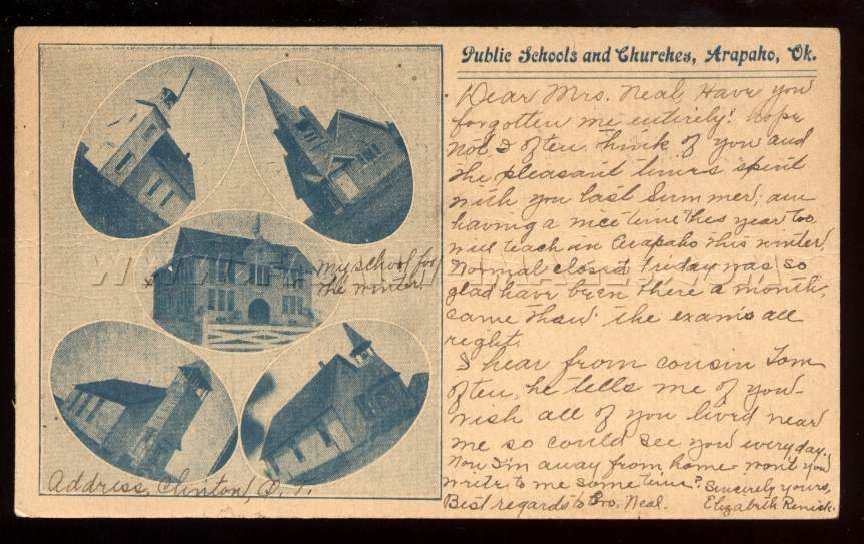 Public Schools and Churches, Arapaho, Ok.
Dear Mrs. Neal, Have you
forgotten me entirely? hope
not I often think of you and
the pleasant times spent
with you last Summer, am
having a nice time this year too
will teach in Arapaho this winter.
Normal closed Friday was so
glad have been there a month,
came thru' the exams all
right.
I hear from cousin Tom
often, he tells me of you-
wish all of you lived near
me so could see you every day.
Now I'm away from home- won't you
write to me some time? Sincerely yours,
Best regards to Bro. Neal. Elizabeth Renick.
My school for
the winter.
Address, Clinton, O. T.